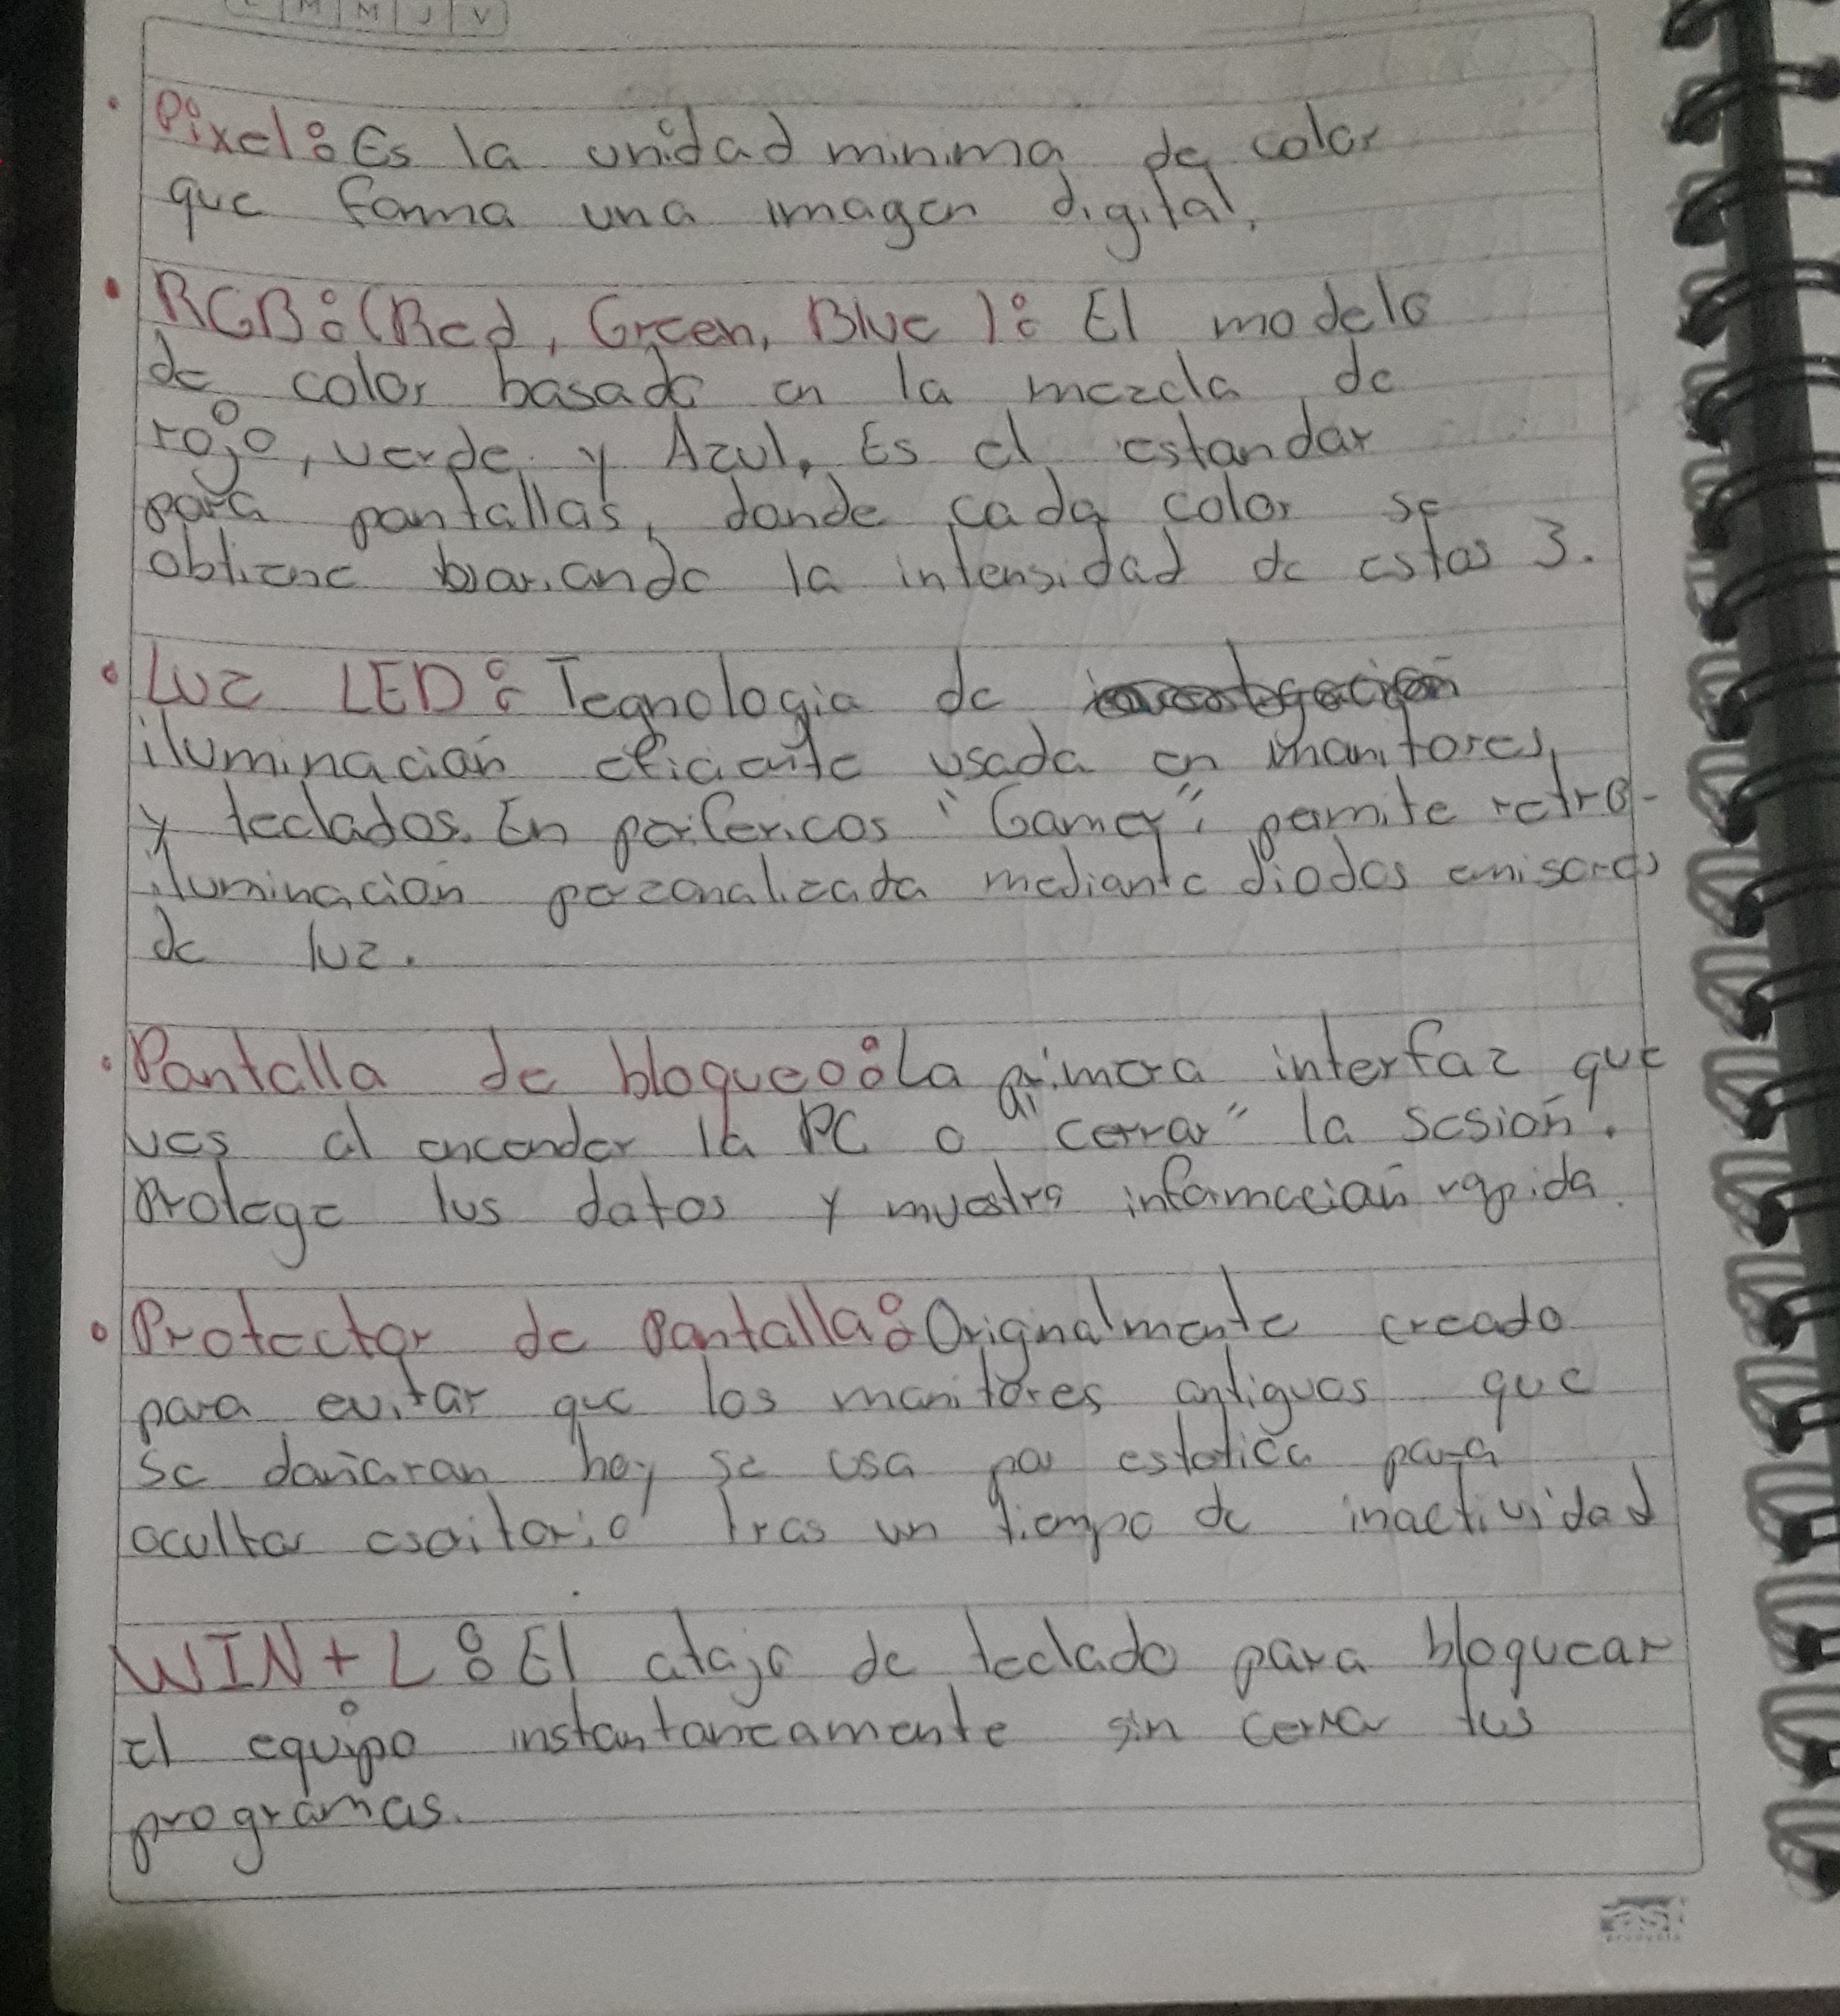 L M M J V
• Pixel: Es la unidad minima de color
que forma una imagen digital.
• RGB: (Red, Green, Blue): El modelo
de color basado en la mezcla de
rojo, verde y Azul. Es el estandar
para pantallas, donde cada color se
obtiene bariando la intensidad de estos 3.
• Luz LED: Tegnologia de
iluminación eficiente usada en monitores
y teclados. En perifericos "Gamer", permite retro-
iluminación perzonalizada mediante diodos emisores
de luz.
• Pantalla de bloqueo: La primera interfaz que
ves al encender la PC o "cerrar" la sesión.
Protege tus datos y muestra información rapida.
• Protector de Pantalla: Orignalmente creado
para evitar que los monitores antiguos que
se dañaran hoy se usa por estetica para
ocultar escritorio tras un tiempo de inactividad
WIN + L: El atajo de teclado para bloquear
el equipo instantaneamente sin cerrar tus
programas.